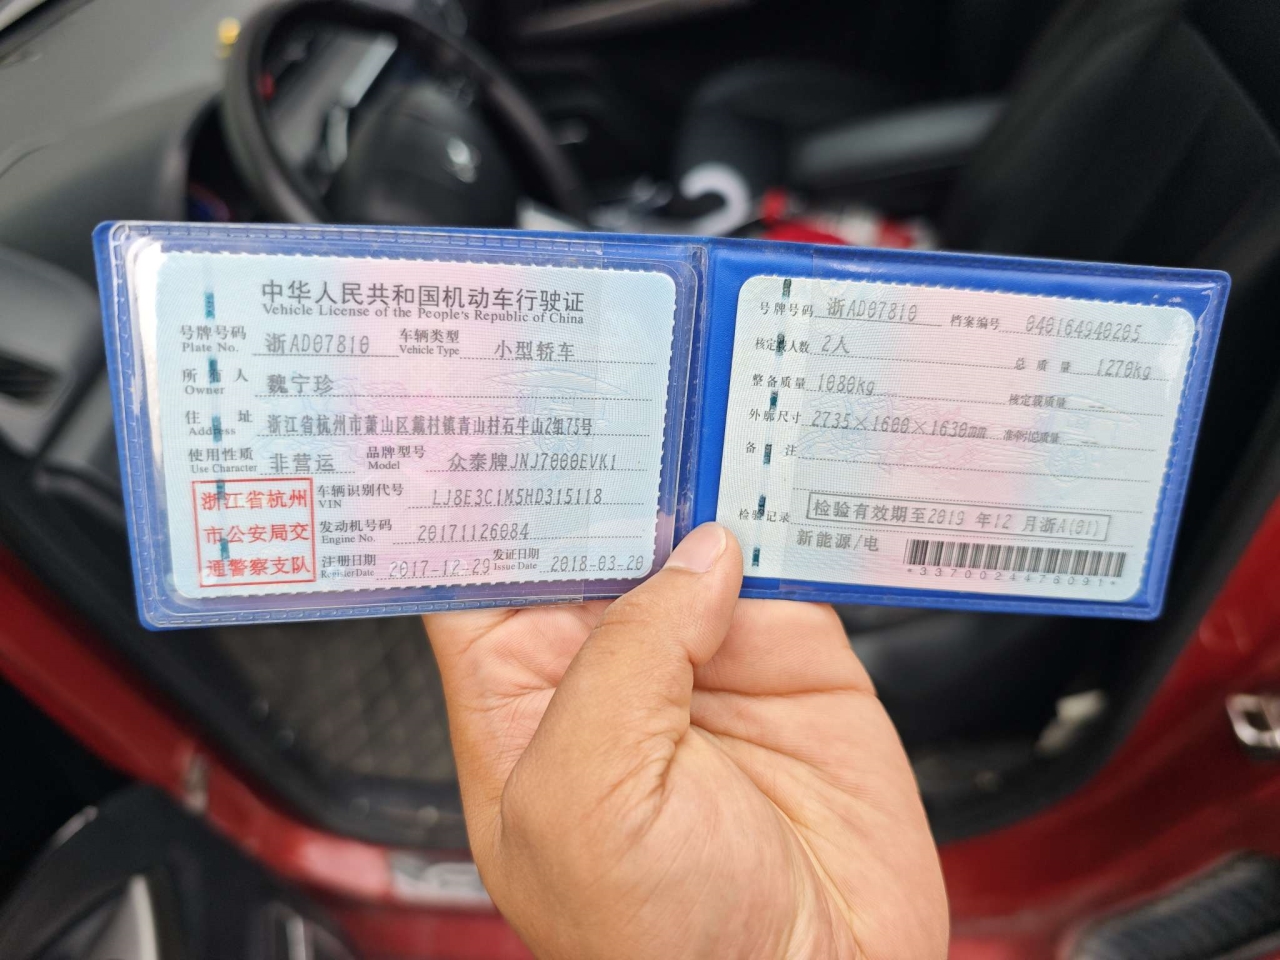 中华人民共和国机动车行驶证
Vehicle License of the People's Republic of China
号牌号码 浙AD07810 车辆类型 小型轿车
Plate No. Vehicle Type
所有人 魏宁珍
Owner
住址 浙江省杭州市萧山区戴村镇青山村石牛山2组75号
Address
使用性质 非营运 品牌型号 众泰牌JNJ7000EVK1
Use Character Model
浙江省杭州
市公安局交
通警察支队
车辆识别代号 LJ8E3C1M5HD315118
VIN
发动机号码 20171126084
Engine No.
注册日期 2017-12-29 发证日期 2018-03-20
Register Date Issue Date
号牌号码 浙AD07810 档案编号 040164940205
核定载人数 2人 总质量 1270kg
整备质量 1080kg 核定载质量 --
外廓尺寸 2735×1600×1630mm 准牵引总质量 --
备注
检验记录 检验有效期至2019 年12 月浙A(01)
新能源/电
*3370024476091*